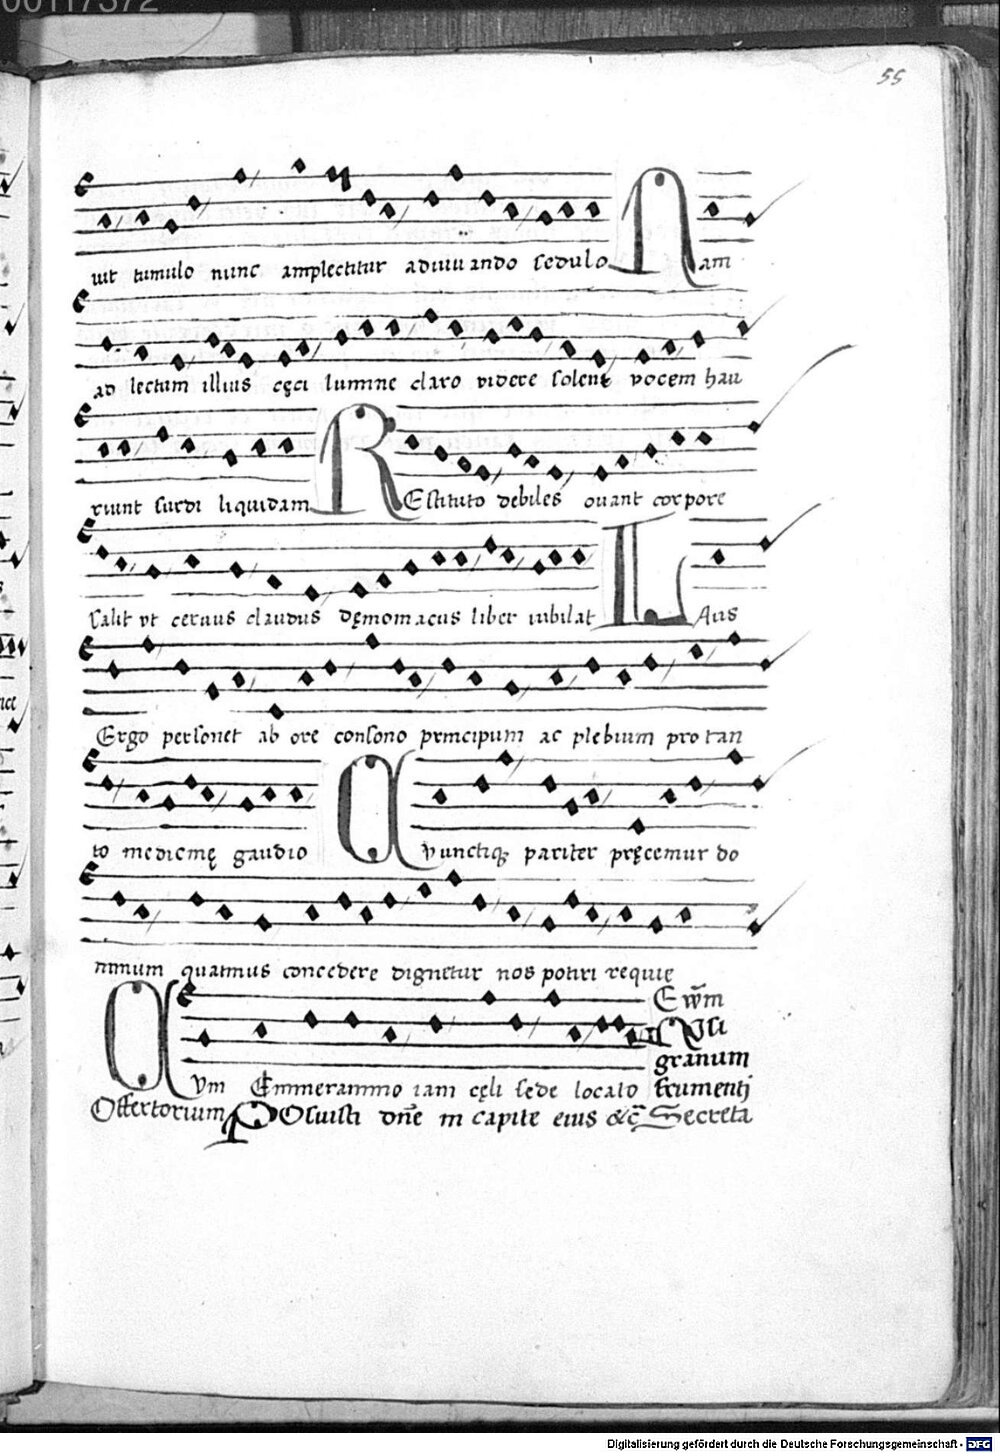 00117372
55
uit tumulo nunc amplectitur adiuuando sedulo Nam
ad lectum illius cęci lumine claro videre solent vocem hau
riunt surdi liquidam REstituto debiles ouant corpore
salit vt ceruus claudus dęmoniacus liber iubilat LAus
Ergo personet ab ore consono principum ac plebium pro tan
to medicinę gaudio Cunctiqꝫ pariter pręcemur do
minum quatinus concedere dignetur nos potiri requie
CVm Emmerammo iam cęli sede locato Ewm̃
Nisi
granum
frumenti
Offertorium POsuisti dñe in capite eius &c̃ Secreta
Digitalisierung gefördert durch die Deutsche Forschungsgemeinschaft - DFG